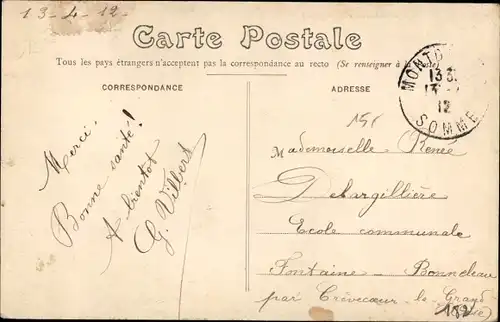 13-4-12
Carte Postale
Tous les pays étrangers n'acceptent pas la correspondance au recto (Se renseigner à la Poste)
CORRESPONDANCE
Merci.
Bonne santé!
A bientot
G. Villert
ADRESSE
Mademoiselle Renée
Delargillière
Ecole communale
Fontaine-Bonneleau
par Crèvecœur-le-Grand
(Oise)
SOMME
12